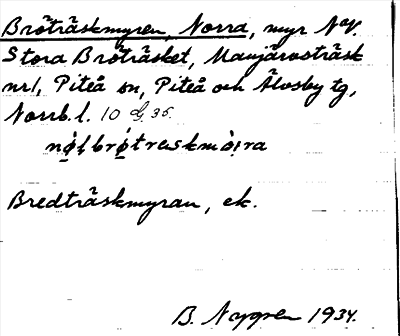 Bröträskmyren, Norra, myr N av.
Stora Bröträsket, Manjärvsträsk
nr 1, Piteå sn, Piteå och Älvsby tg,
Norrb. l. 10 d, 35.
Bredträskmyran, ek.
B. Nygren 1934.